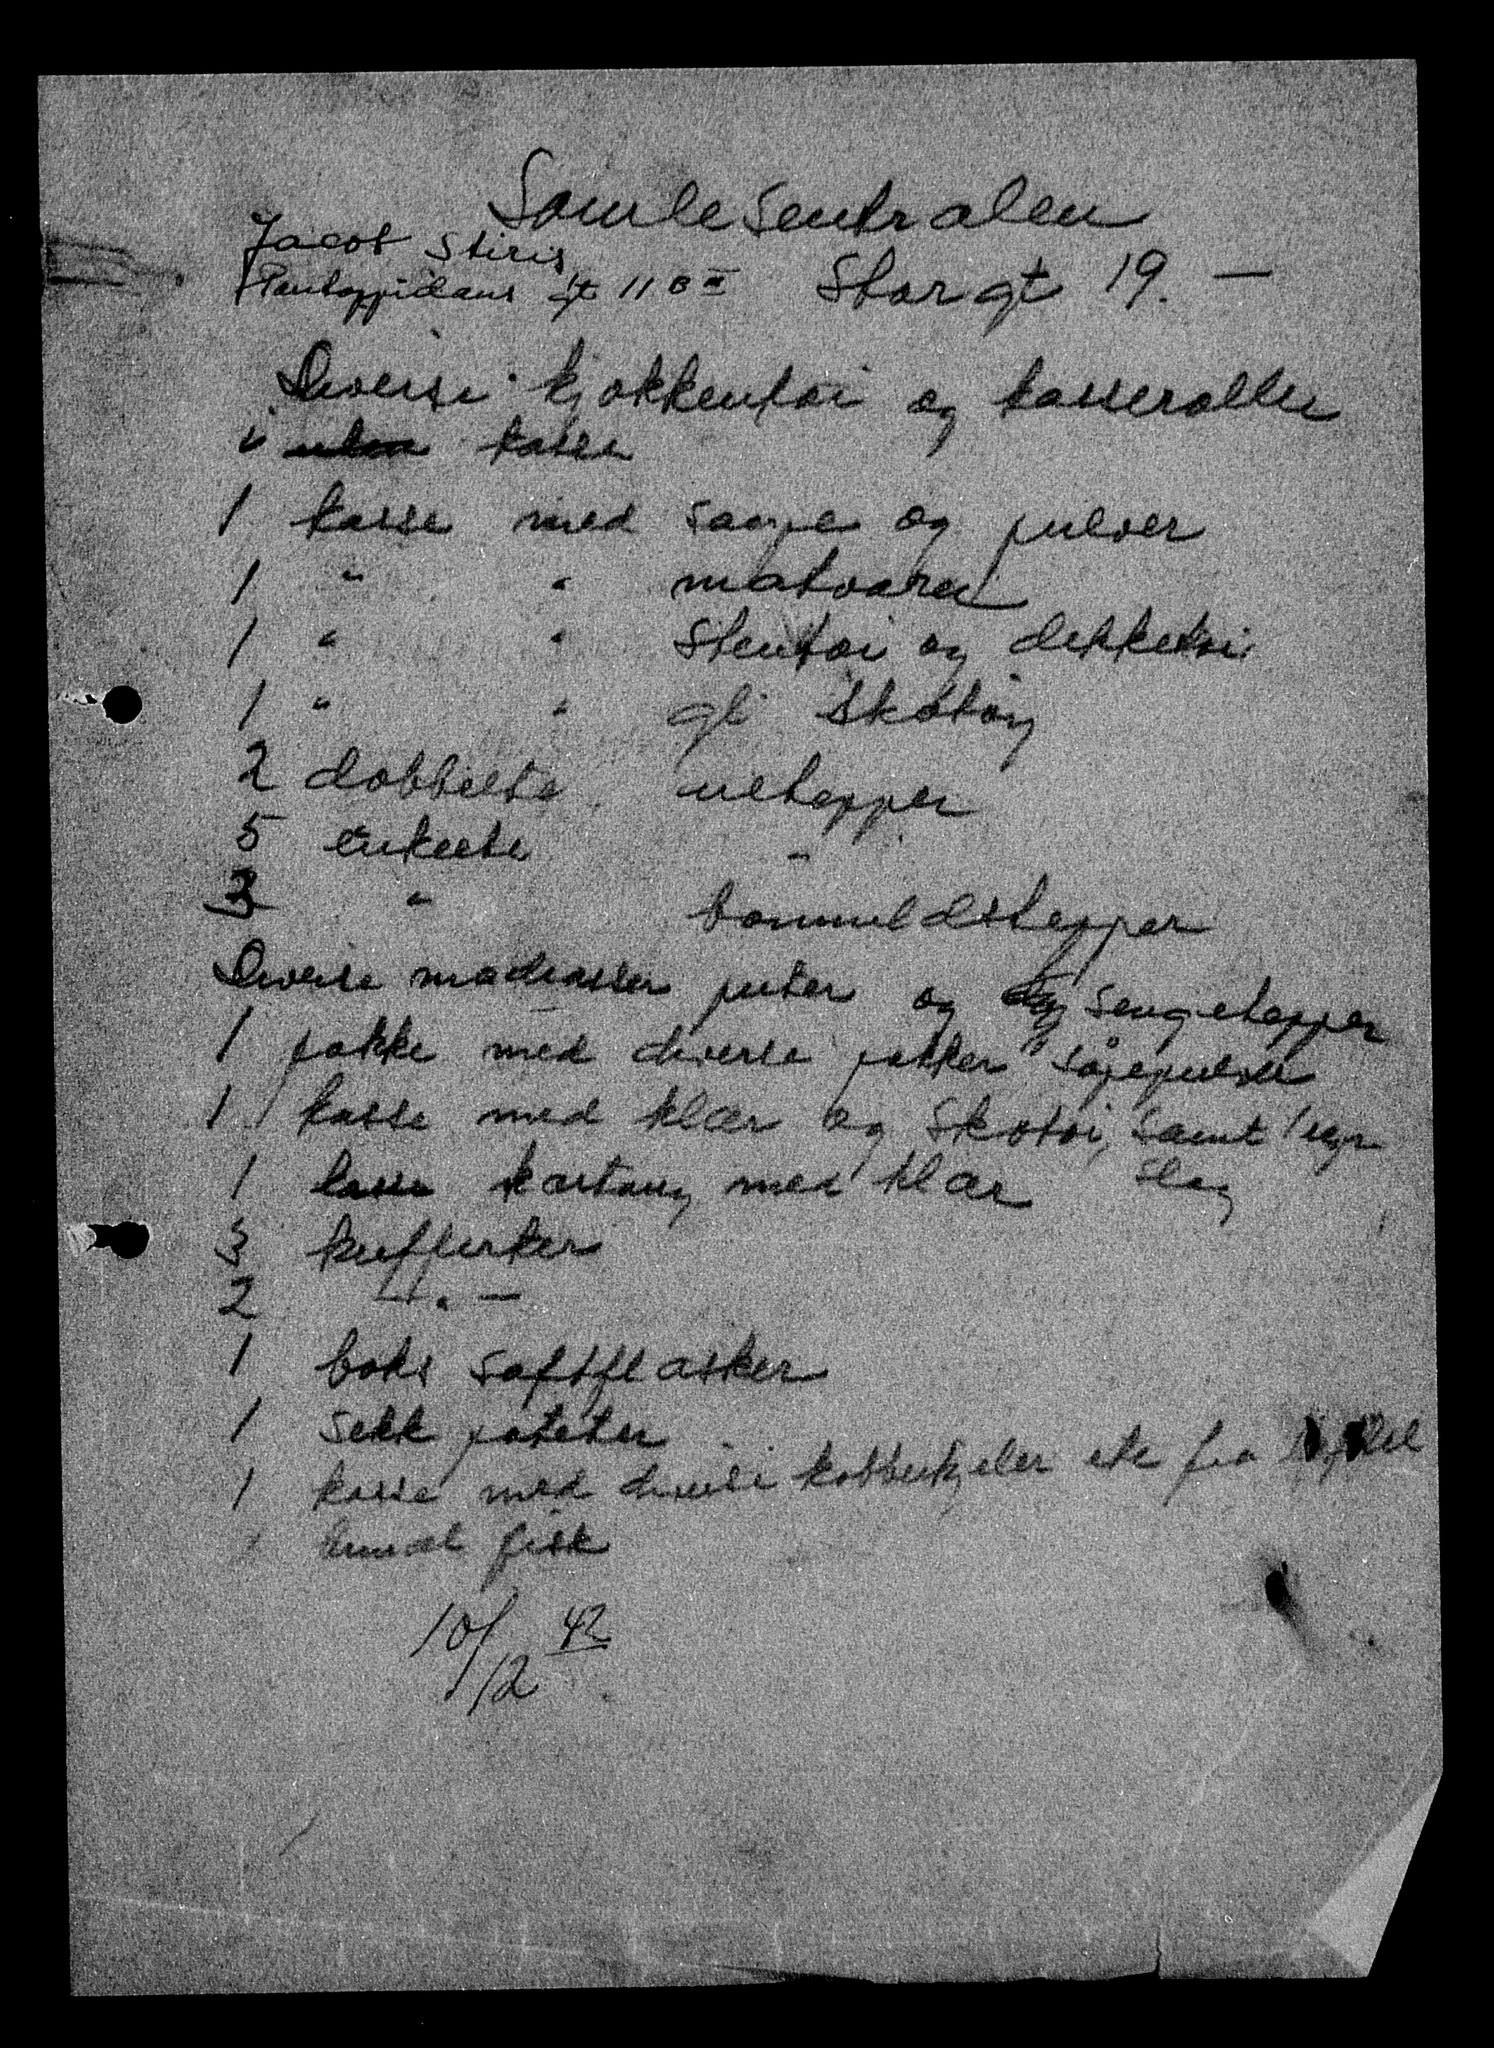 Samlesentralen
Jacob Stiris
Pontoppidans gt 11 B III Storgt 19. —
Diverse kjøkkentøi og kasseroller
i kasse
1 kasse med saape og pulver
1 " " matvarer
1 " " Stentøi og dekketøi
1 " " gl. skotøy
2 dobbelte ultepper
5 enkelte "
3 " bomuldstepper
Diverse madrasser puter og sengetepper
1 pakke med diverse pakker såpepulver
1 kasse med klær og skotøi, samt 1 regn
slag
1 kartong med klær
3 kufferter
2 — " —
1 boks saftflasker
1 sekk poteter
1 kasse med diverse kobberkjeler etc fra
1 bundt fisk
10/12 42